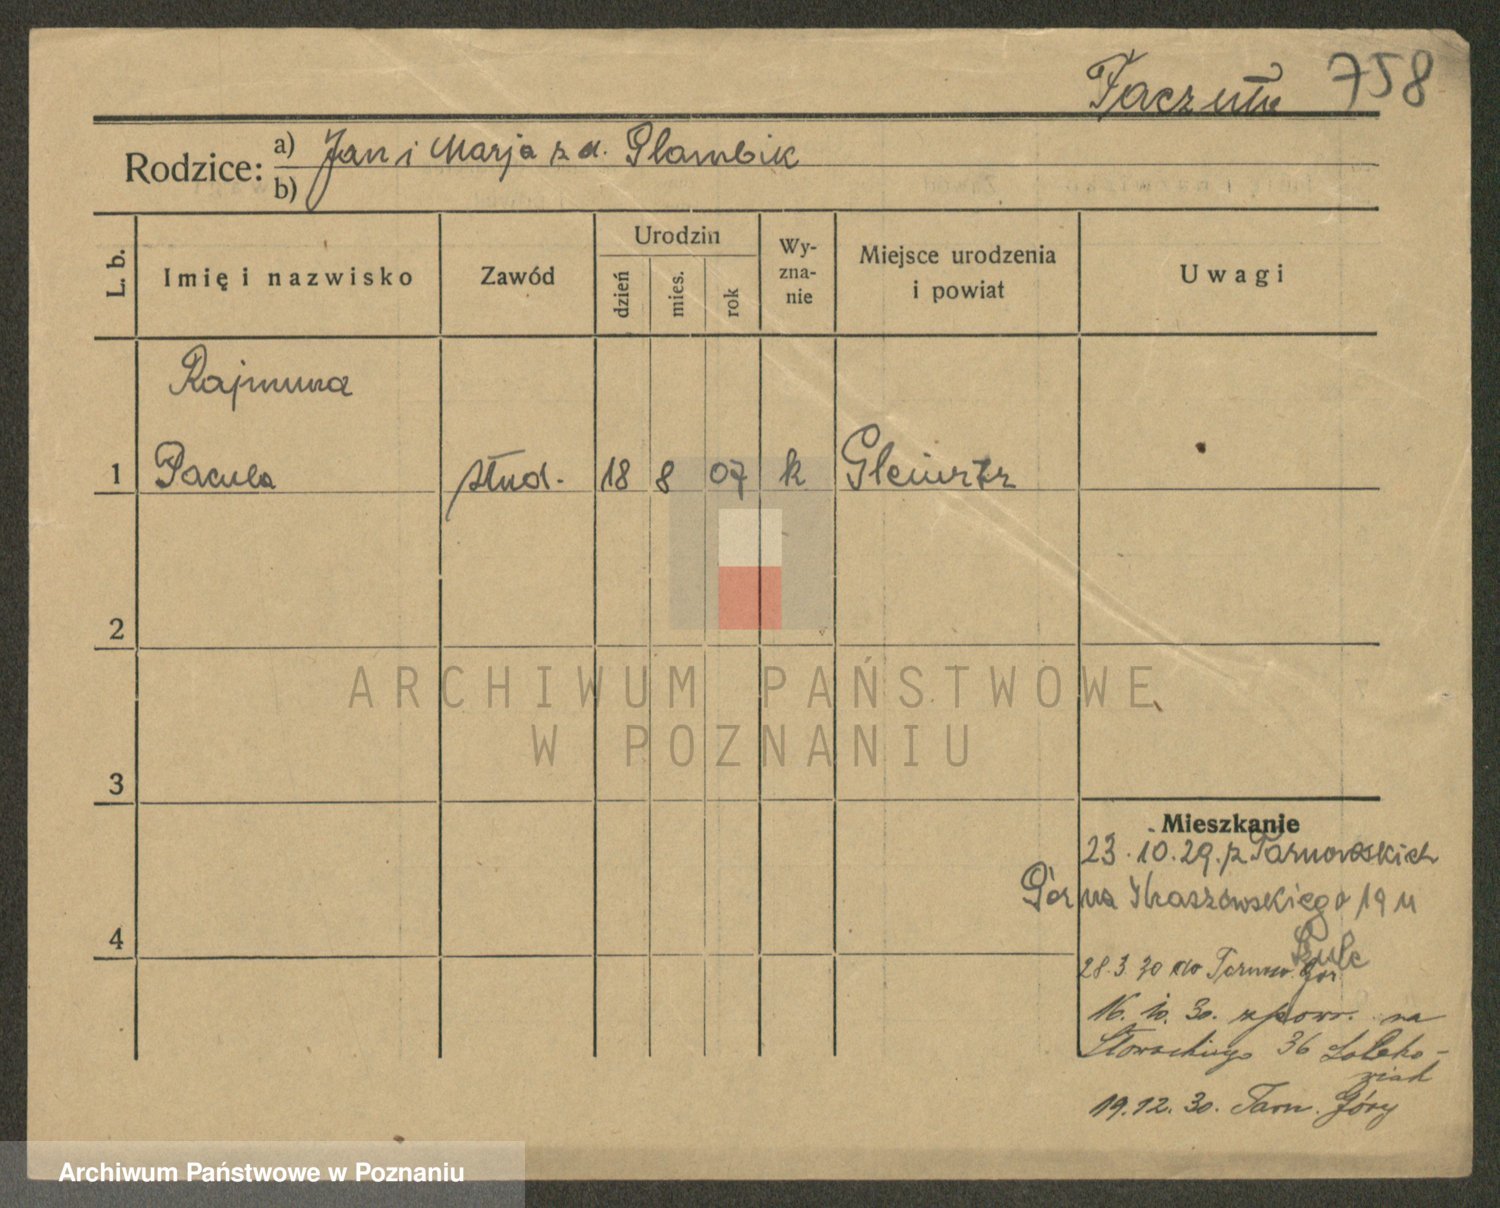 758
Rodzice: a) Jan i Marja z d. Plambik
b)
L. b. Imię i nazwisko Zawód Urodzin dzień mies. rok Wy-zna-nie Miejsce urodzenia i powiat Uwagi
Rajmund
1 Pacula stud. 18 8 07 k Gleiwitz
2
3
4
Mieszkanie
23.10.29. z Tarnowskich
Gór na Kraszewskiego 19 u
Szulc
28.3.30 do Tarnow. Gór
16.10.30. z powr. na
Słowackiego 36
19.12.30. Tarn. Góry
ARCHIWUM PAŃSTWOWE
W POZNANIU
Archiwum Państwowe w Poznaniu